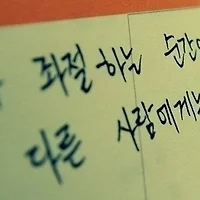 좌절하는 순간
다른 사람에게는